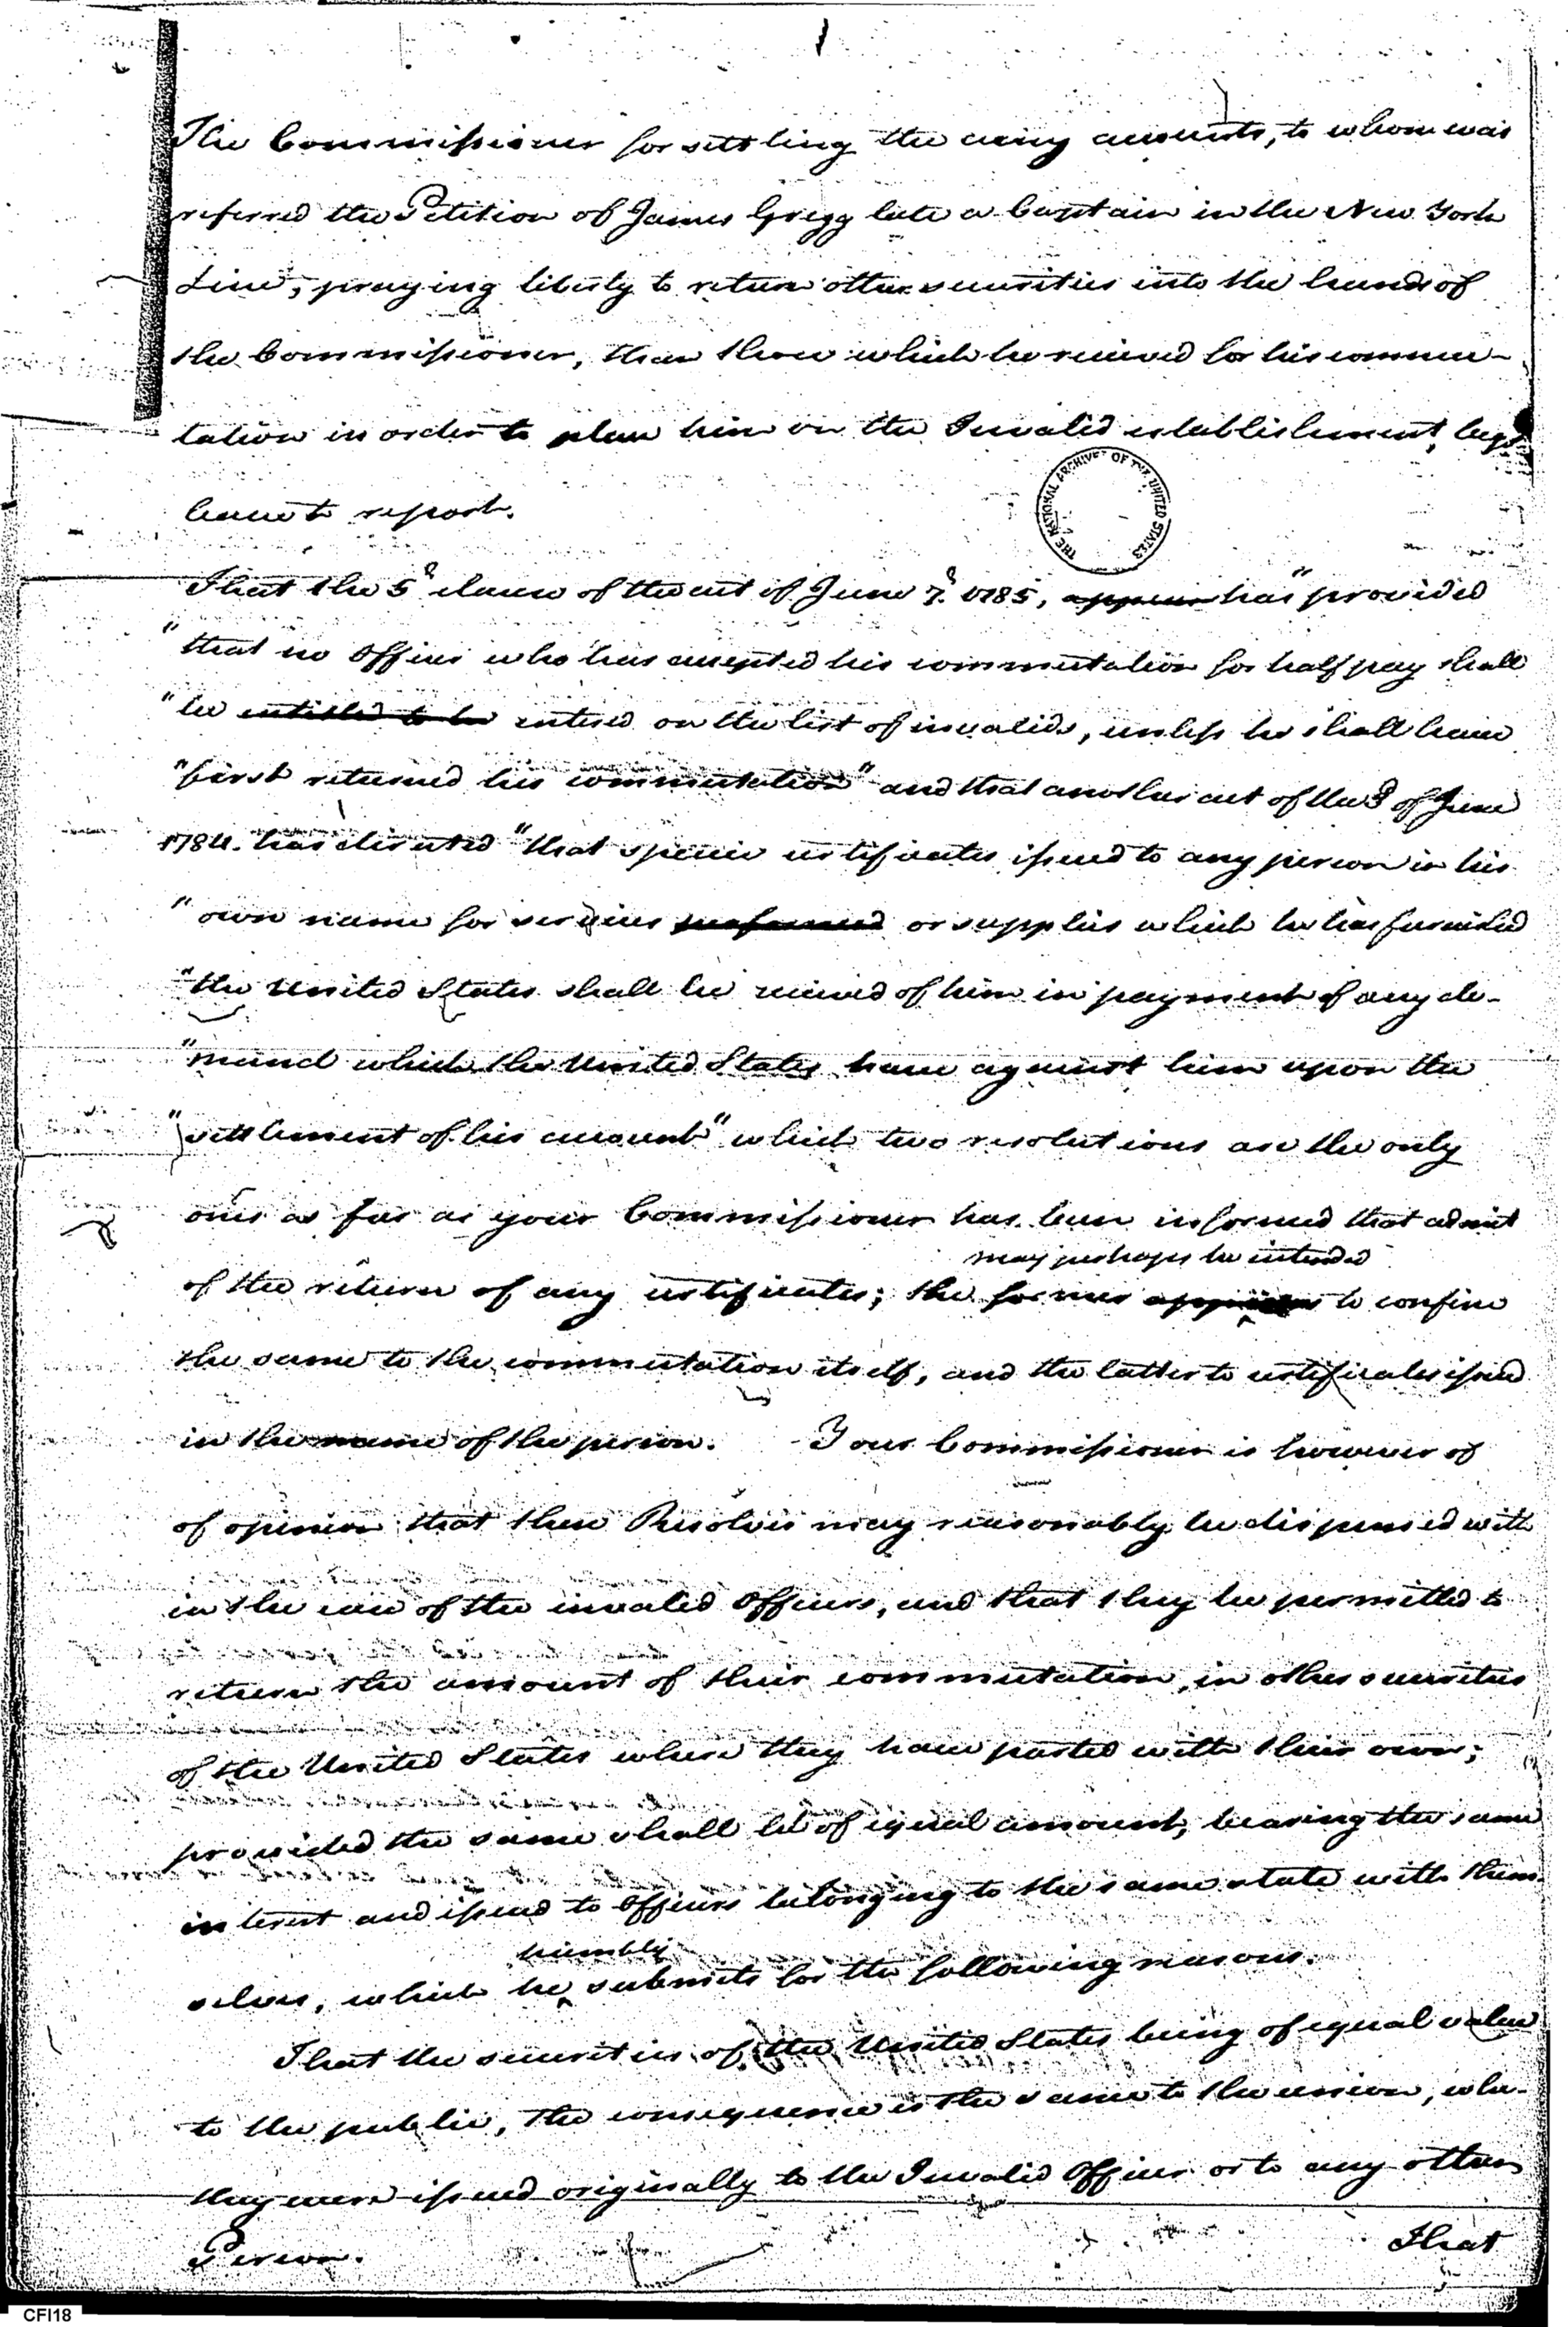 The Commissioner for settling the army accounts, to whom was
referred the Petition of James Gregg late a Captain in the New York
Line, praying liberty to return other securities into the hands of
the Commissioner, than those which he recieved for his commu-
tation in order to place him on the Invalid establishment, begs
leave to report.
THE NATIONAL ARCHIVES OF THE UNITED STATES
That the 5th clause of the act of June 7th 1785, appears has "provided
"that no Officer who has accepted his commutation for half pay shall
"be entitled to be entered on the list of invalids, unless he shall have
"first returned his commutation" and that another act of the 3d of June
1784. has directed "that specie certificates issued to any person in his
"own name for services performed or supplies which he has furnished
"the United States shall be recieved of him in payment of any de-
"mand which the United States have against him upon the
"settlement of his account" which two resolutions are the only
ones as far as your Commissioner has been informed that admit
may perhaps be intended
of the return of any certificates; the former appears to confine
the same to the commutation itself, and the latter to certificates issued
in the name of the person. Your Commissioner is however of
of opinion that these Resolves may reasonably be dispensed with
in the case of the invalid Officers, and that they be permitted to
return the amount of their commutation, in other securities
of the United States where they have parted with their own;
provided the same shall be of equal amount, bearing the same
interest and issued to Officers belonging to the same state with them-
humbly
selves, which he submits for the following reasons.
That the securities of the United States being of equal value
to the public, the consequence is the same to the union, whe-
they were issued originally to the Invalid Officer or to any other
Person. That
CFI18